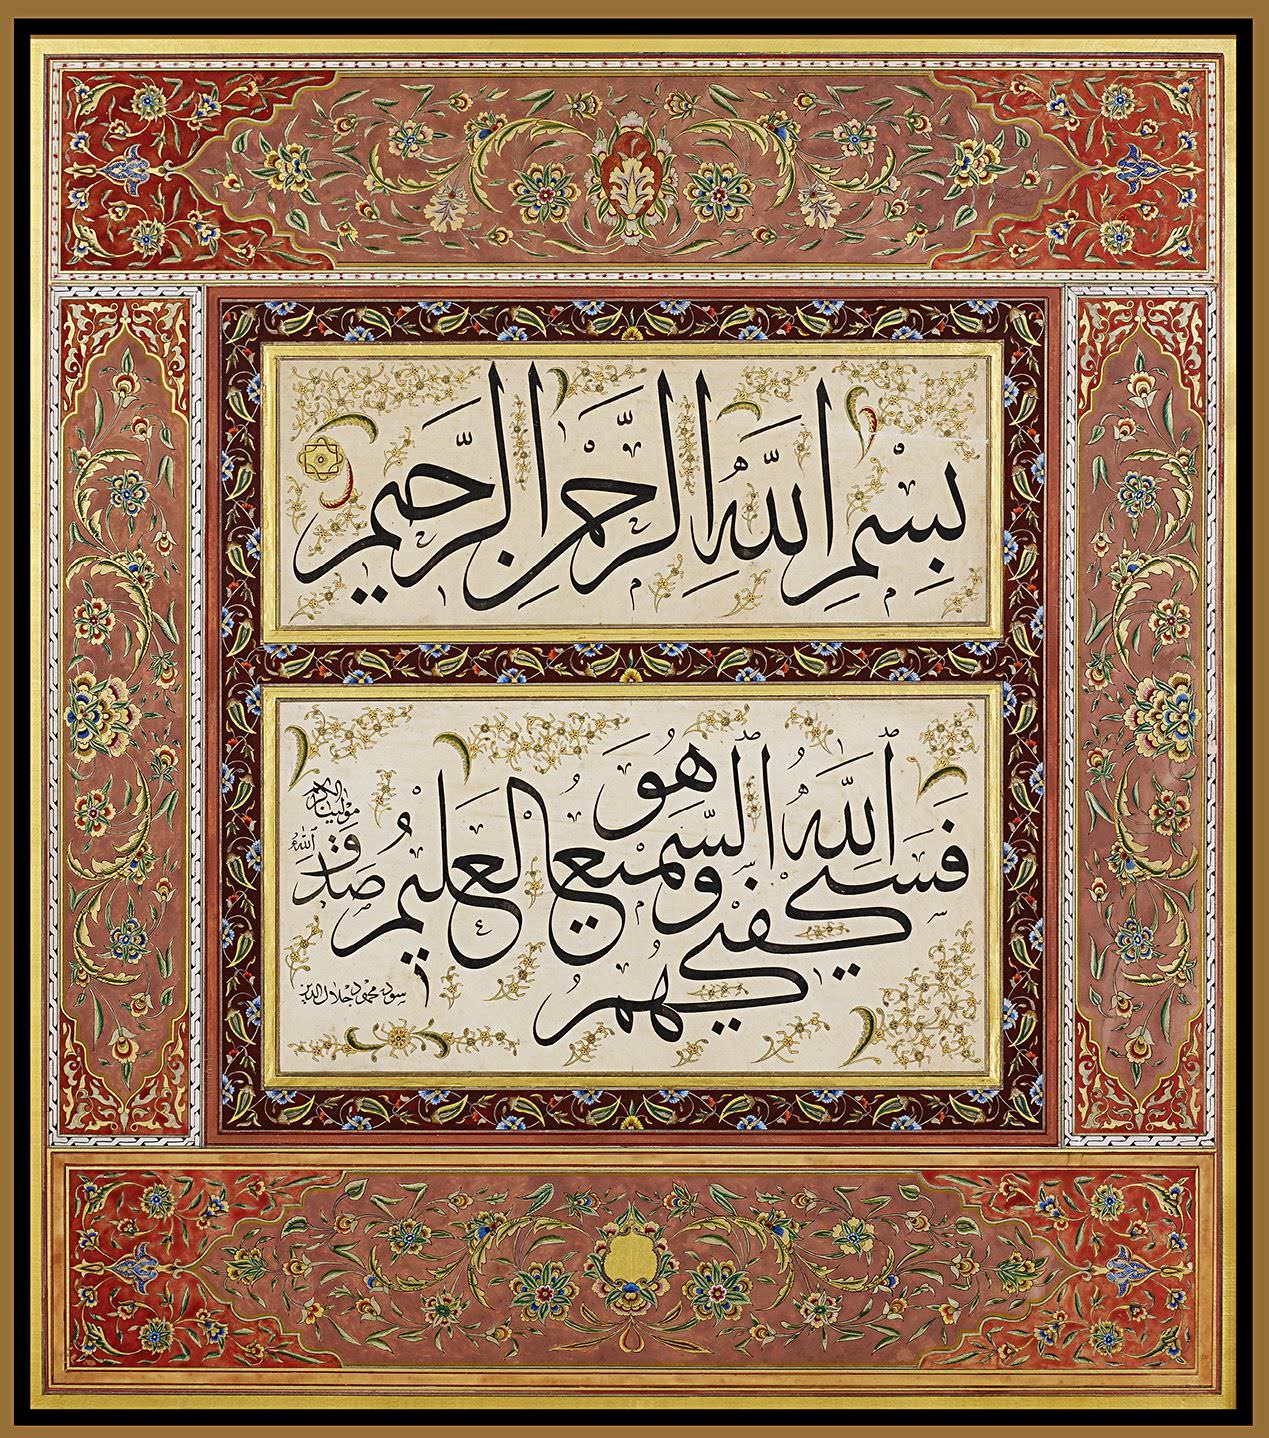 بِسْمِ اللَّهِ الرَّحْمٰنِ الرَّحِيمِ
فَسَيَكْفِيكَهُمُ اللَّهُ وَهُوَ السَّمِيعُ الْعَلِيمُ
صدق الله
مولينا الكريم
سوده محمود جلال الدين